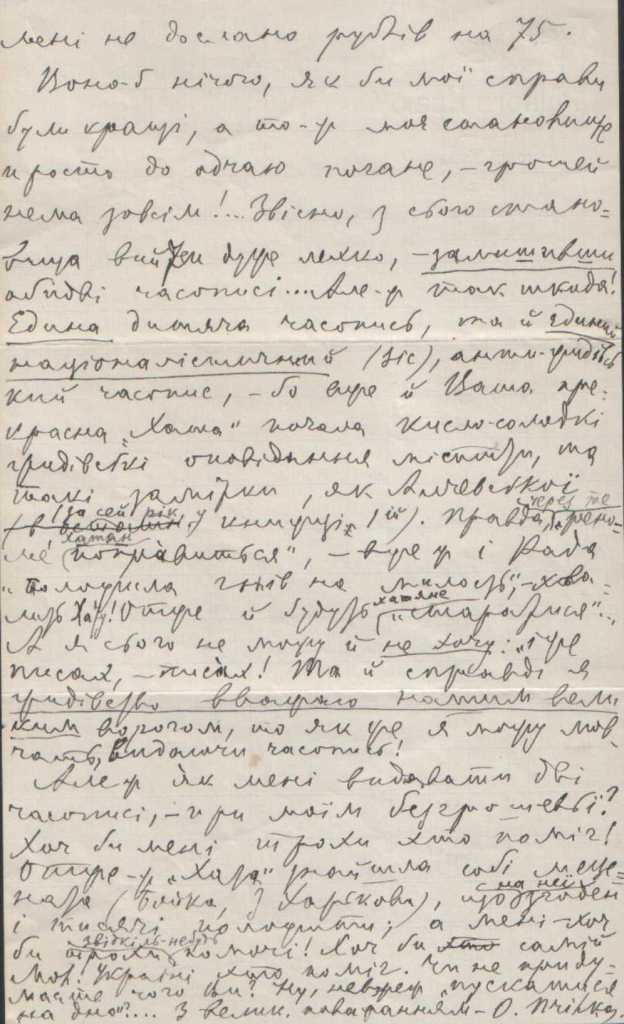 мені не дослано рублів на 75.
Воно-б нічого, як би мої справи
були кращі, а то-ж моє становище
просто до одчаю погане, – грошей
нема зовсім!... Звісно, з сього стано=
вища вийти дуже легко, – залишивши
обидві часописі... Але-ж так шкода!
Єдина дитяча часопись, та й єдиний
націоналістичний (sic), анти-жидівсь
кий часопис, – бо вже й Ваша пре-
красна „Хата" почала кисло-солодкі
жидівські оповідання містити, та
такі замітки, як Алчевської
(в за сей рік у книжці, 1й). Правда, через те
„Хатян „поправиться", – вже ж і Рада
„положила гнів на милость", – хва=
лить Хату! Отже й будуть хатяне „старатися"...
А я сього не можу й не хочу: „Іже
писах, – писах! Та й справді я
жидівство вважаю нашим вели
ким ворогом, то як же я можу мов-
чать, видаючи часопись!
Але ж як мені видавати дві
часописі, – при моїм безгрошевьї?
Хоч би мені трохи хто поміг!
Отже-ж „Хата" знайшла собі меце-
ната (Бойка, з Харькова), що згоден на неї
і тисячі положити; а мені – хоч
би звідкіль-небудь трохи помочі! Хоч би хто самій
Мол. Україні хто поміг. Чи не приду-
маєте чого Ви? Ну, невже ж „пускатися
на дно"?... З велик. поважанням – О. Пчілка.